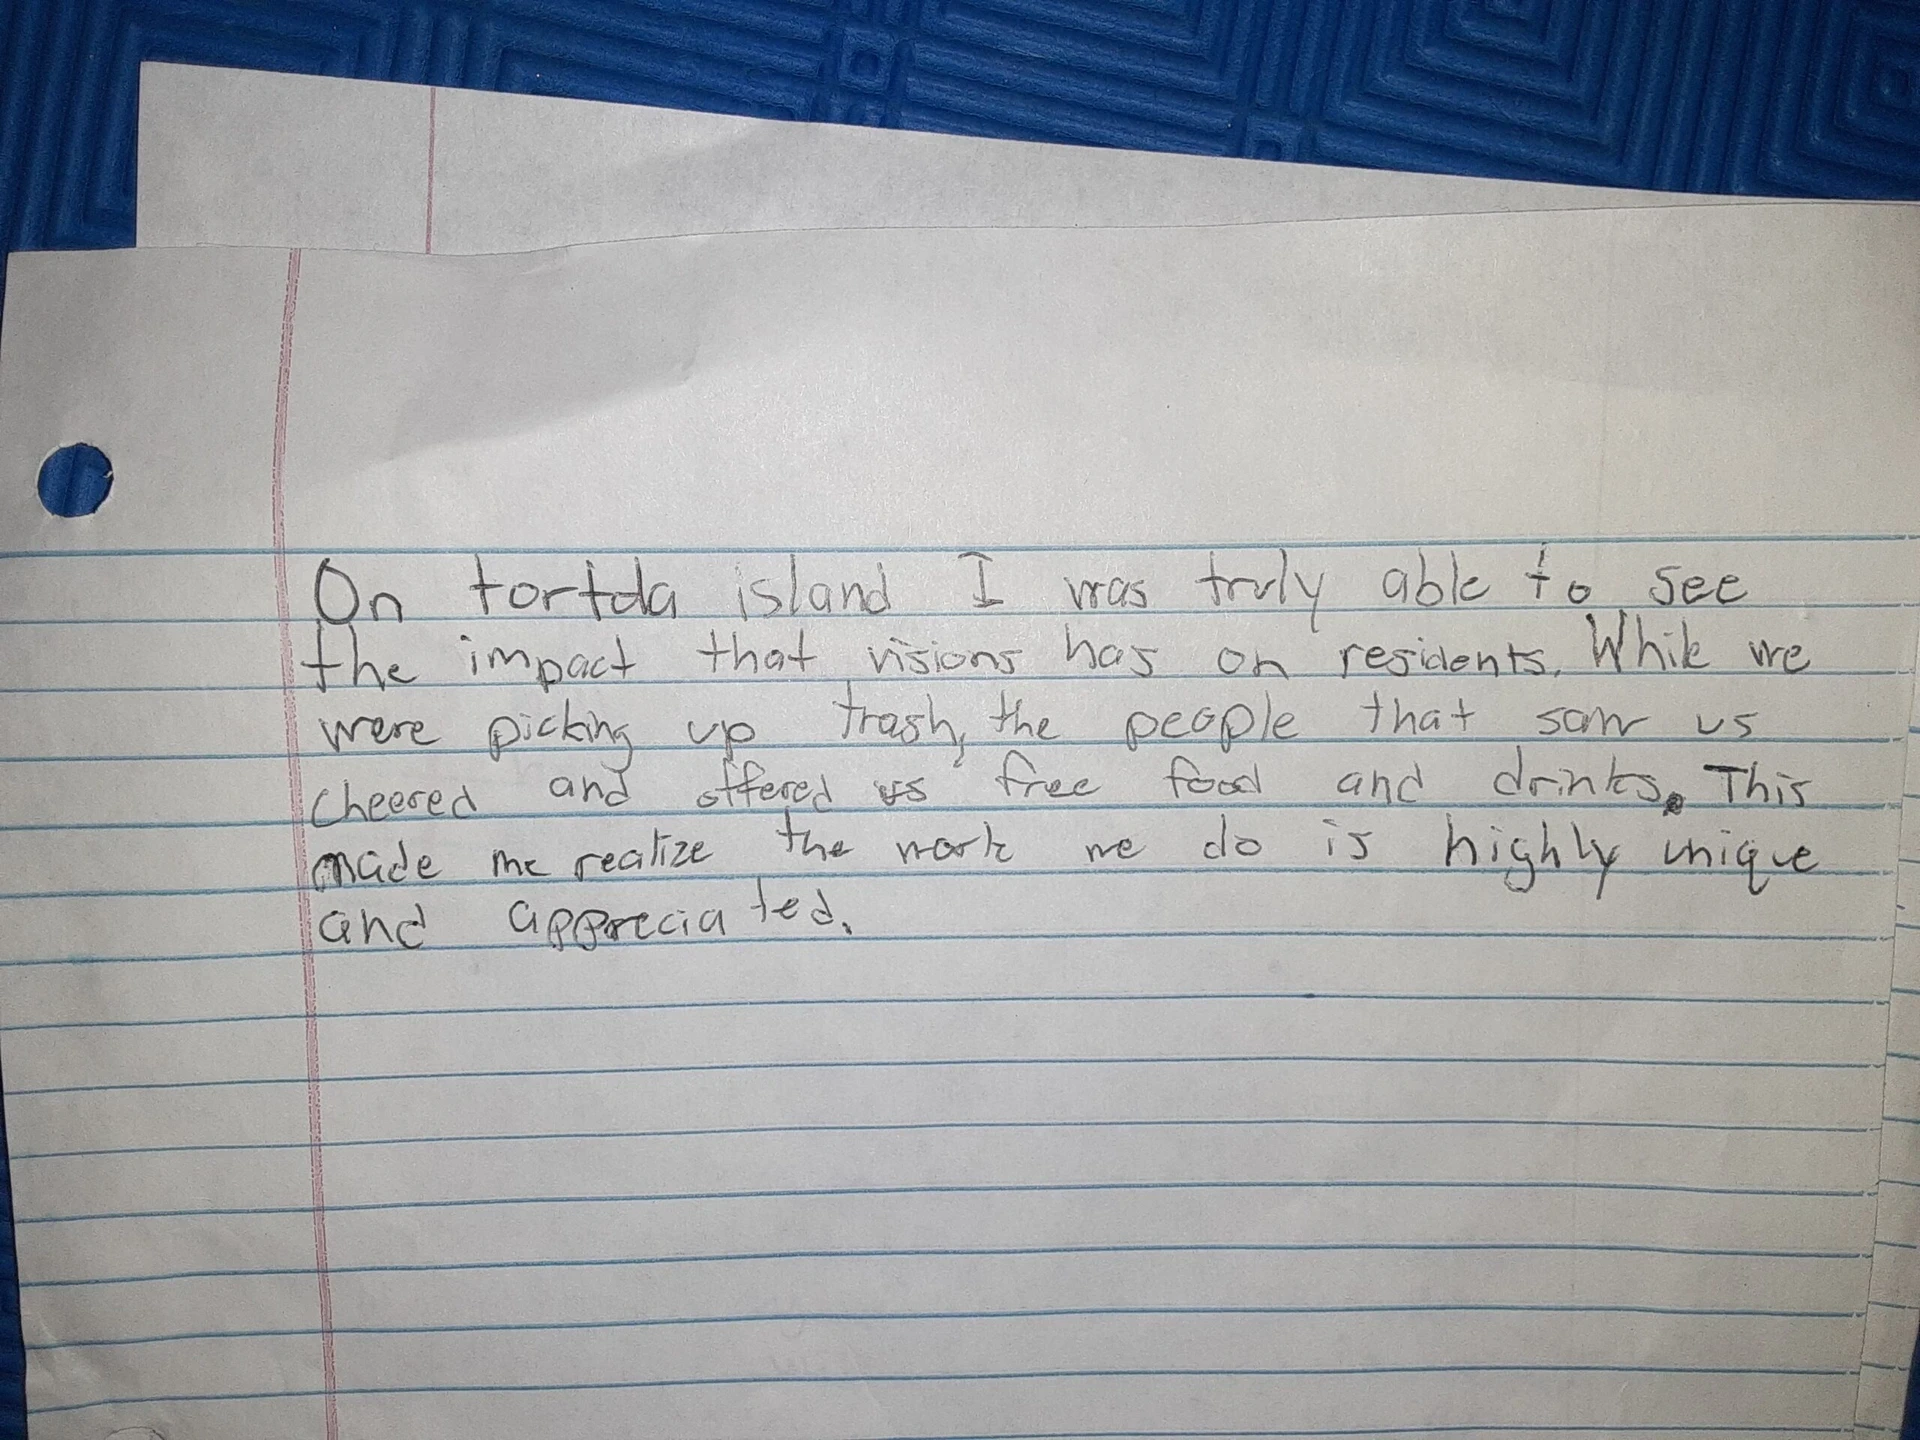 On tortola island I was truly able to see
the impact that visions has on residents. While we
were picking up trash, the people that saw us
cheered and offered us free food and drinks. This
made me realize the work we do is highly unique
and appreciated.